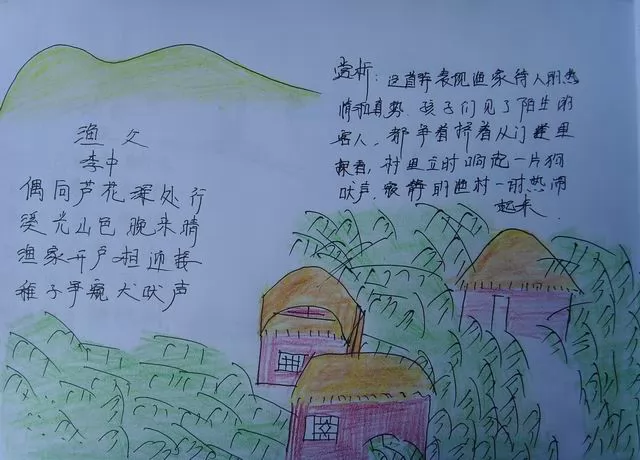 渔父
李中
偶向芦花深处行
溪光山色晚来晴
渔家开户相迎接
稚子争窥犬吠声
赏析：这首诗表现渔家待人的热
情和真势，孩子们见了陌生的
客人，都争着挤着从门缝里
探看，村里立时响起一片狗
吠声，寂静的渔村一时热闹
起来．